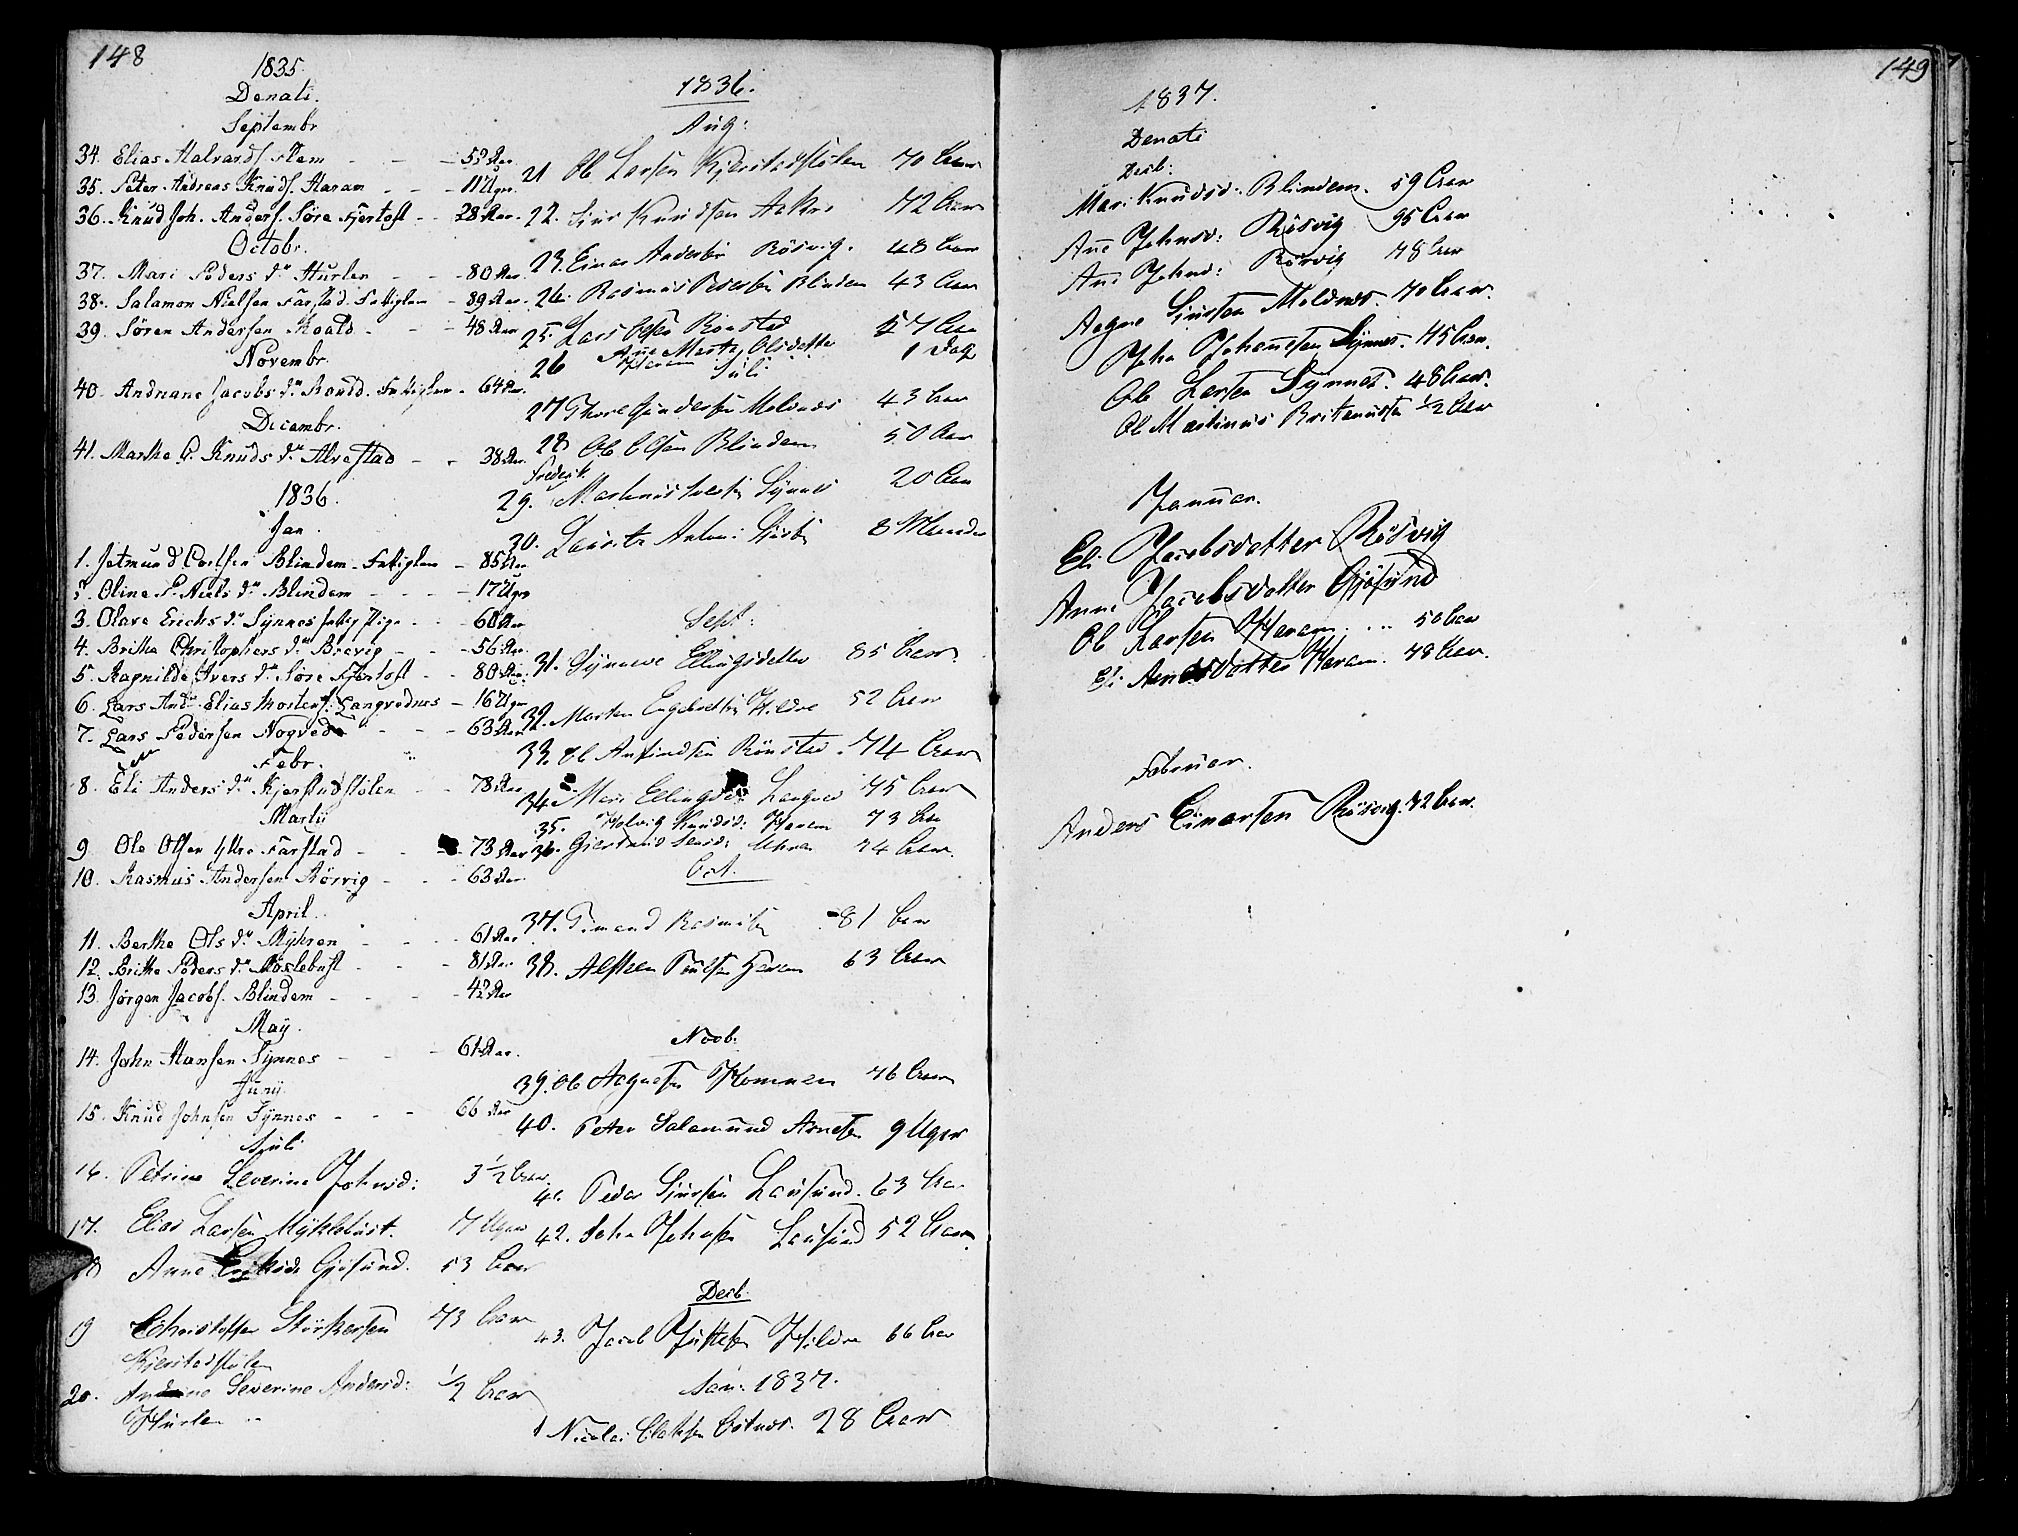 148
1835.
Denati.
Septembr
34. Elias Halvards. Ham - - - 59 Aar
35. Peter Andreas Knuds. Haram - - - 11 Ugr.
36. Knud Joh. Anders. Søre Fjertoft - - 28 Aar
Octobr.
37. Mari Peders dr Hurlen - - - 80 Aar
38. Salamon Nielsen Farstad. Fattiglem - 89 Aar
39. Søren Andersen Skoald - - - 48 Aar
Novembr.
40. Andriane Jacobs dr Roudd. Fattiglem - 64 Aar
Decembr.
41. Marthe Knuds dr Alvestad - - 38 Aar
1836.
Jan.
1. Jetmund Blindem - Fattiglem - 85 Aar
2. Oline P. Niels dr Blindem - - - 17 Ugr
3. Olave Erichs dr Synnes - - 60 Aar
4. Britha Christophers dr Brevig - - 56 Aar
5. Ragnilde Ivers dr Søre Fjertoft - - 80 Aar
6. Lars And. Elias Mortens. Langvednes - 16 Ugr
7. Lars Pedersen Nogved - - - 63 Aar
Febr.
8. Eli Anders dr Kjerstadstølen - - 78 Aar
Martii
9. Ole Olsen Ytre Farstad - - 73 Aar
10. Rasmus Andersen Rørvig - - - 63 Aar
April.
11. Berthe Ols dr Myhren - - - 61 Aar
12. Brithe Peders dr Møklebust - - - 81 Aar
13. Jørgen Jacobs. Blindem - - - 42 Aar
May.
14. John Hansen Synnes - - - 61 Aar.
Junij
15. Knud Johnsen Synnes - - - 66 Aar
Juli
16. Petrine Severine Johnsd: 3 1/2 Aar
17. Elias Larsen Myklebust. 7 Ugr
18 Anne Eriksd. Gjøsund. 53 Aar
19 Christoffer Størkersen 73 Aar
Kjerstadstølen
20. Andrine Severine Andersd: 1/2 Aar
Hurlen
1836.
Aug:
21 Ole Larsen Kjerstadstølen 70 Aar
22. Knudsen Aakre 72 Aar
23. Einar Andersen Røsvig. 48 Aar
24. Rasmus Petersen Blindem 43 Aar
25. Lars Olsen Rønstad 57 Aar
26 Ane Marta Olsdatter 1 Dag
Haram
Juli
27 Thore Gundersen Molnes 43 Aar
28 Ole Olsen Blindem 50 Aar
29. Frederik Martinus Synnes 20 Aar
30. Lauritz 8 Maaneder
Sept:
31. Synneve Ellingsdatter 85 Aar
32. Morten Engebretsen Hildre 52 Aar
33. Ole Anfindsen Rønstad. 74 Aar
34. Mari Ellingsd. Langved 75 Aar
35. Knudsd: Haram 73 Aar
36. Giertrud Uhren 74 Aar
Oct.
37. Rasmusen 81 Aar
38. Haram 63 Aar
Novb.
39. Ole Aagesen Hammen 76 Aar
40. Peter Salamund Arnesen 9 Uger
41. Peder Sjursen Lausund. 63 Aar
42. John Johnsen Lausund 52 Aar
Decb.
43. Jacob Hildre 66 Aar
Jan: 1837.
1 Nicolai Olaisen Østnes. 28 Aar
149
1837.
Denati
Decb:
Mari Knudsd: Blindem. 59 Aar
Ane Johnsd: Røsvig 95 Aar
Ane Johnsd: Rørvig 78 Aar
Aagne Sjursen Molnes. 70 Aar.
John Johansen Synnes. 75 Aar.
Ole Larsen Synnes. 48 Aar.
Ole Martinus 1/2 Aar
Januar.
Eli Jacobsdatter Røsvig
Anne Jacobsdatter Gjøsund
Ole Larsen Haram. ... 50 Aar
Eli Arnesdatter Haram. 78 Aar.
Februar.
Anders Einarsen Røsvig. 72 Aar.